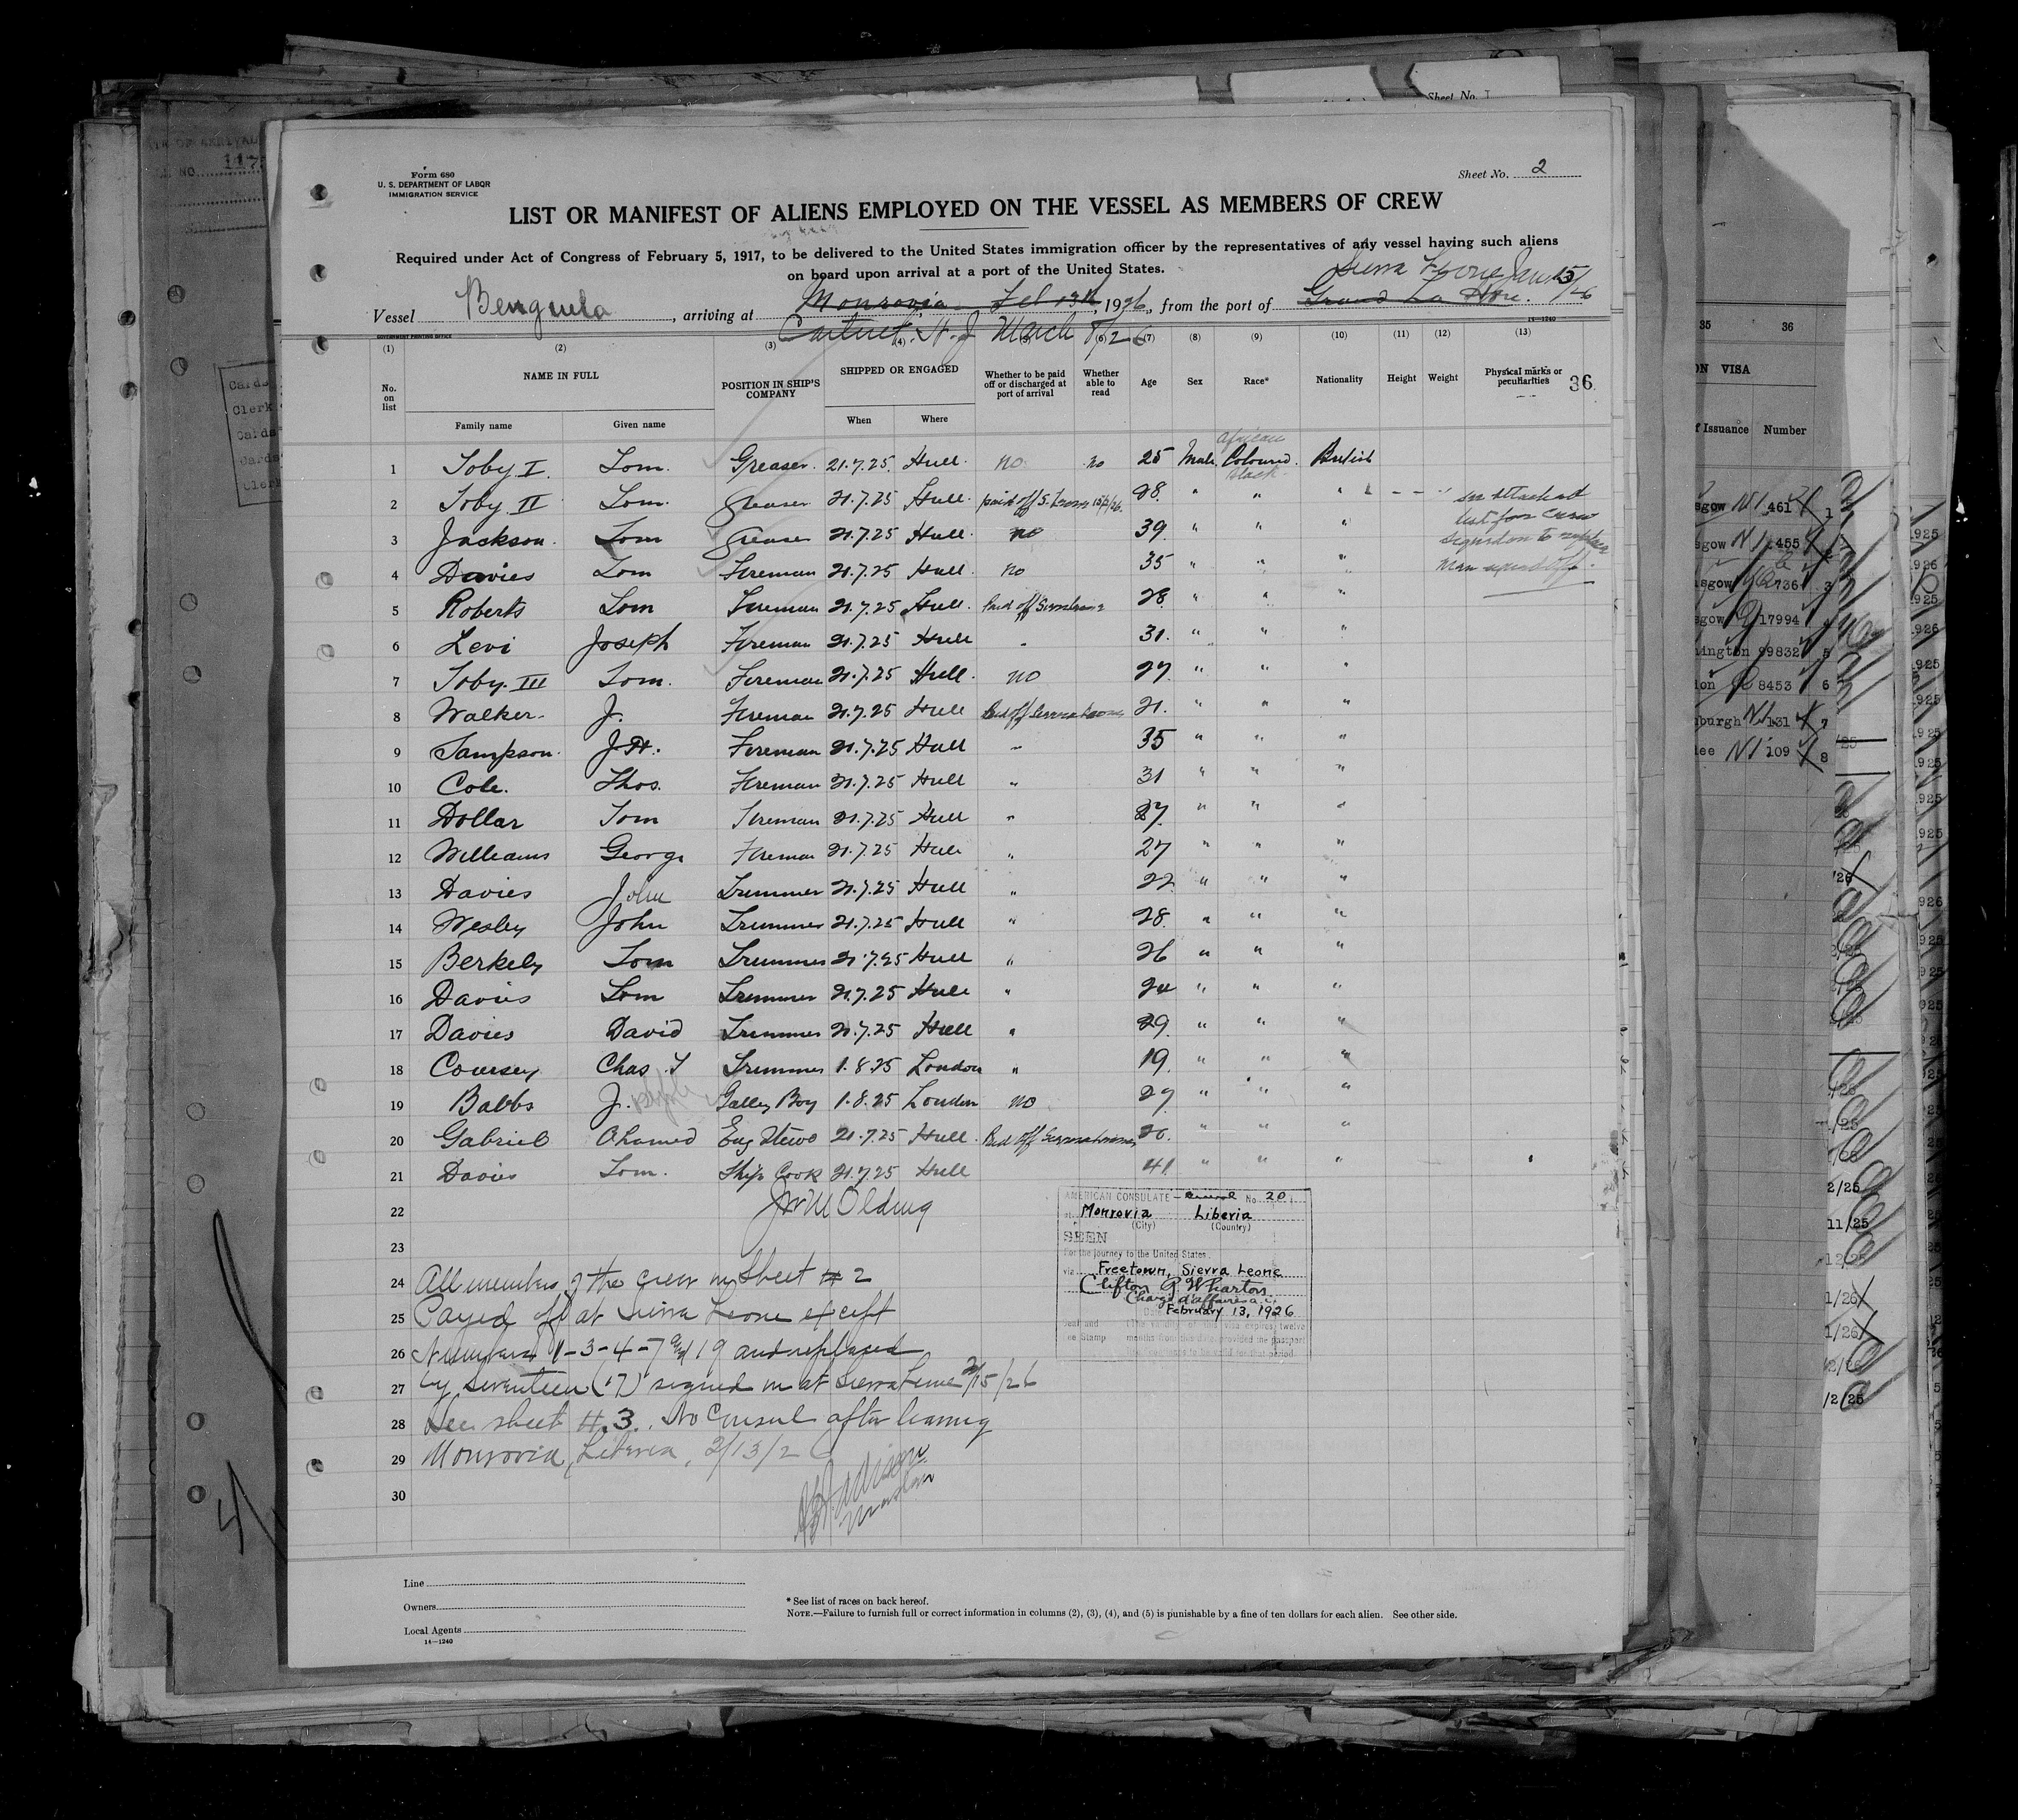 Form 680
U. S. DEPARTMENT OF LABOR
IMMIGRATION SERVICE
Sheet No. 2
LIST OR MANIFEST OF ALIENS EMPLOYED ON THE VESSEL AS MEMBERS OF CREW
Required under Act of Congress of February 5, 1917, to be delivered to the United States immigration officer by the representatives of any vessel having such aliens
on board upon arrival at a port of the United States.
Sierra Leone Jan 15/26
Vessel Benguela, arriving at Monrovia Feb 13th, 1926, from the port of Grand
Carteret. N. J March 8/26
14—1240
GOVERNMENT PRINTING OFFICE
(1) (2) (3) (4) (5) (6) (7) (8) (9) (10) (11) (12) (13)
No. on list NAME IN FULL POSITION IN SHIP'S COMPANY SHIPPED OR ENGAGED Whether to be paid off or discharged at port of arrival Whether able to read Age Sex Race* Nationality Height Weight Physical marks or peculiarities 36
Family name Given name When Where
African
1 Toby I Tom. Greaser. 21.7.25. Hull. no no 25 Male Coloured. British
black
2 Toby II Tom. Greaser 21.7.25 Hull. paid off S. Leone 15/2/26. 28. " " " see attached
list for crew
3 Jackson. Tom Greaser 21.7.25 Hull. no 39. " " " signed on to replace
4 Davies Tom Fireman 21.7.25 Hull. no 35 " " " Men signed off.
5 Roberts Tom Fireman 21.7.25 Hull. Paid off Sierra Leone 28. " " "
6 Levi Joseph Fireman 21.7.25 Hull " 31. " " "
7 Toby. III Tom. Fireman 21.7.25 Hull. no 27. " " "
8 Walker. J. Fireman 21.7.25 Hull Paid off Sierra Leone 21. " " "
9 Sampson. J.H. Fireman 21.7.25 Hull " 35 " " "
10 Cole. Thos. Fireman 21.7.25 Hull " 31 " " "
11 Dollar Tom Fireman 21.7.25 Hull " 27. " " "
12 Williams George Fireman 21.7.25 Hull " 27 " " "
13 Davies John Trimmer 21.7.25 Hull " 22 " " "
14 Wesley John Trimmer 21.7.25 Hull " 28. " " "
15 Berkely Tom Trimmer 21.7.25 Hull " 26 " " "
16 Davies Tom Trimmer 21.7.25 Hull " 24 " " "
17 Davies David Trimmer 21.7.25 Hull " 29. " " "
18 Coursey Chas. T Trimmer 1.8.25 London " 19. " " "
19 Babbs J. Galley Boy 1.8.25 London no 27 " " "
20 Gabriel Ohamed Eng Stewd 21.7.25 Hull. Paid off Sierra Leone 26. " " "
21 Davies Tom. Ships Cook 21.7.25 Hull 41. " " "
22 Olding
23
AMERICAN CONSULATE — General No. 20
at Monrovia Liberia
(City) (Country)
SEEN
For the journey to the United States.
via Freetown, Sierra Leone
Clifton R Wharton
Charge d'affaires a.i.
February 13, 1926
24 All members of the crew on Sheet # 2
25 Payed off at Sierra Leone except
26 Numbers 1-3-4-7 and 19 and replaced
27 by seventeen (17) signed on at Sierra Leone 2/15/26
28 See sheet #.3. No Consul after leaving
29 Monrovia, Liberia, 2/13/26
Master
30
Line
Owners
Local Agents
14—1240
* See list of races on back hereof.
NOTE.—Failure to furnish full or correct information in columns (2), (3), (4), and (5) is punishable by a fine of ten dollars for each alien. See other side.
Sheet No.
35 36
VISA
Issuance Number
461 1
455 2
736 3
17994 4
99832 5
8453 6
131 7
109 8